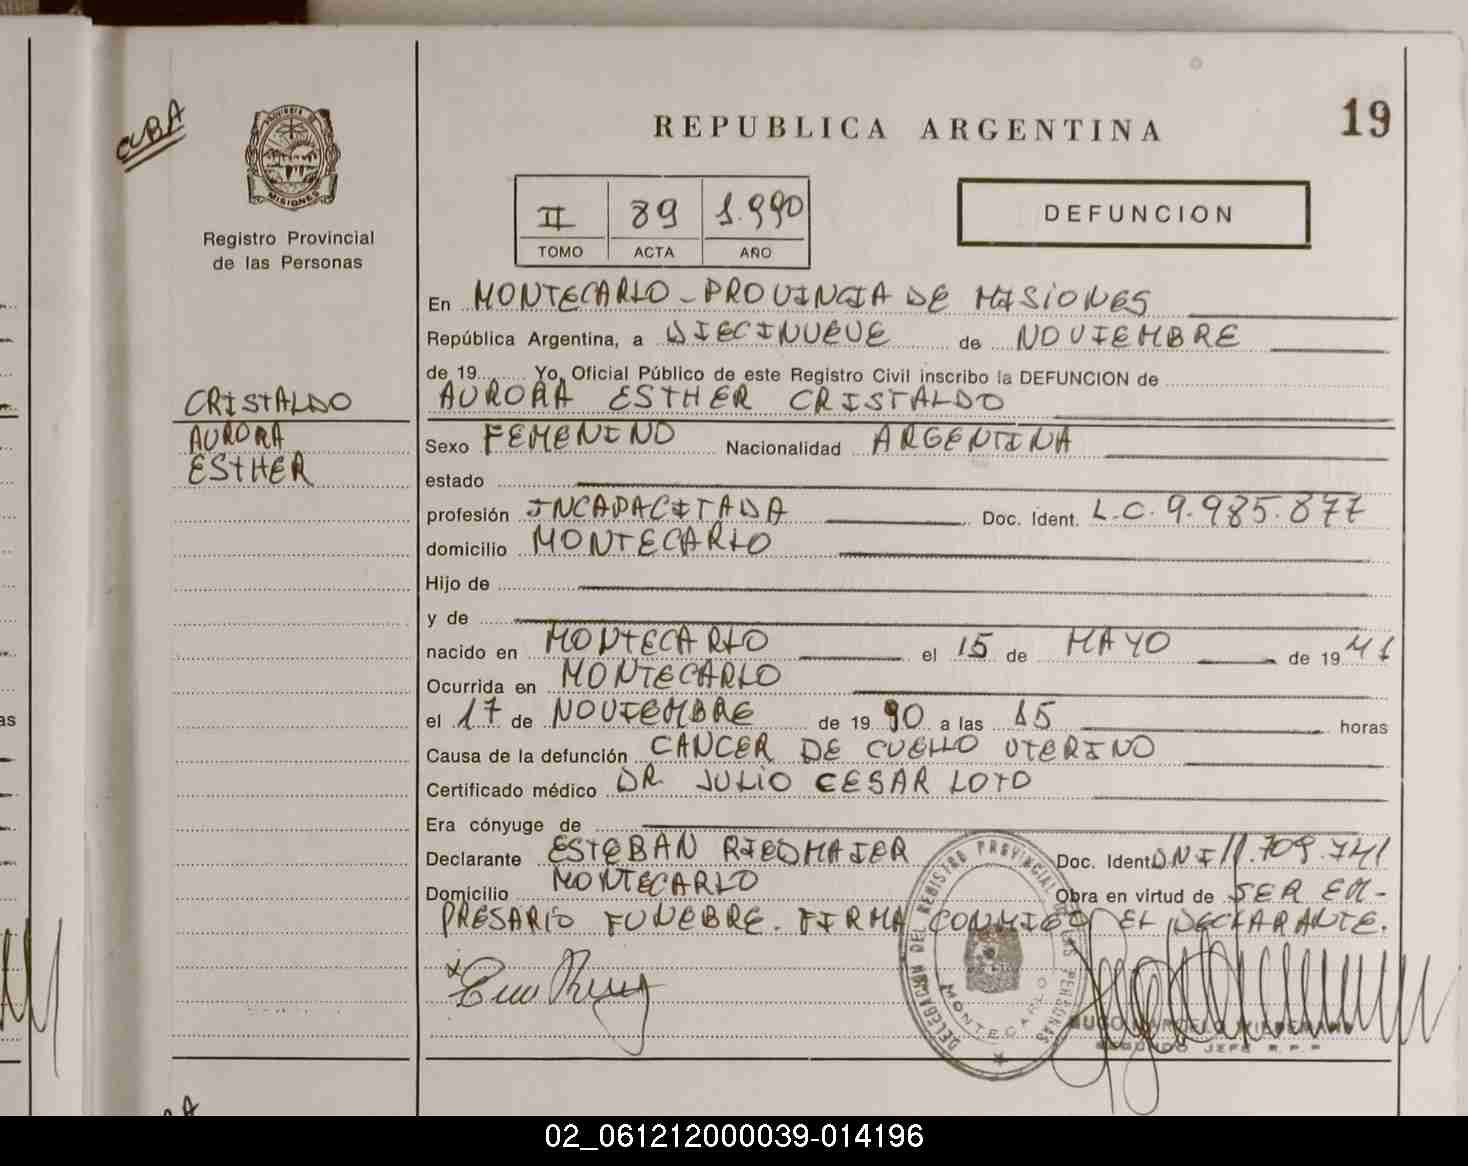 CUBA
PROVINCIA DE
MISIONES
Registro Provincial
de las Personas
CRISTALDO
AURORA
ESTHER
REPUBLICA ARGENTINA
19
II 89 1.990
TOMO ACTA AÑO
DEFUNCION
En MONTECARLO - PROVINCIA DE MISIONES
República Argentina, a DIECINUEVE de NOVIEMBRE
de 19 Yo, Oficial Público de este Registro Civil inscribo la DEFUNCION de
AURORA ESTHER CRISTALDO
Sexo FEMENINO Nacionalidad ARGENTINA
estado
profesión INCAPACITADA Doc. Ident. L.C. 9.985.877
domicilio MONTECARLO
Hijo de
y de
nacido en MONTECARLO el 15 de MAYO de 1941
Ocurrida en MONTECARLO
el 17 de NOVIEMBRE de 1990 a las 15 horas
Causa de la defunción CANCER DE CUELLO UTERINO
Certificado médico DR. JULIO CESAR LOTO
Era cónyuge de
Declarante ESTEBAN RIEDMAIER Doc. Ident DNI 11.709.741
Domicilio MONTECARLO Obra en virtud de SER EM-
PRESARIO FUNEBRE. FIRMA CONMIGO EL DECLARANTE.
DELEGACION DEL REGISTRO PROVINCIAL DE LAS PERSONAS
MONTECARLO
HUGO MARCELO WIEDEMANN
SEGUNDO JEFE R.P.P
as
02_061212000039-014196